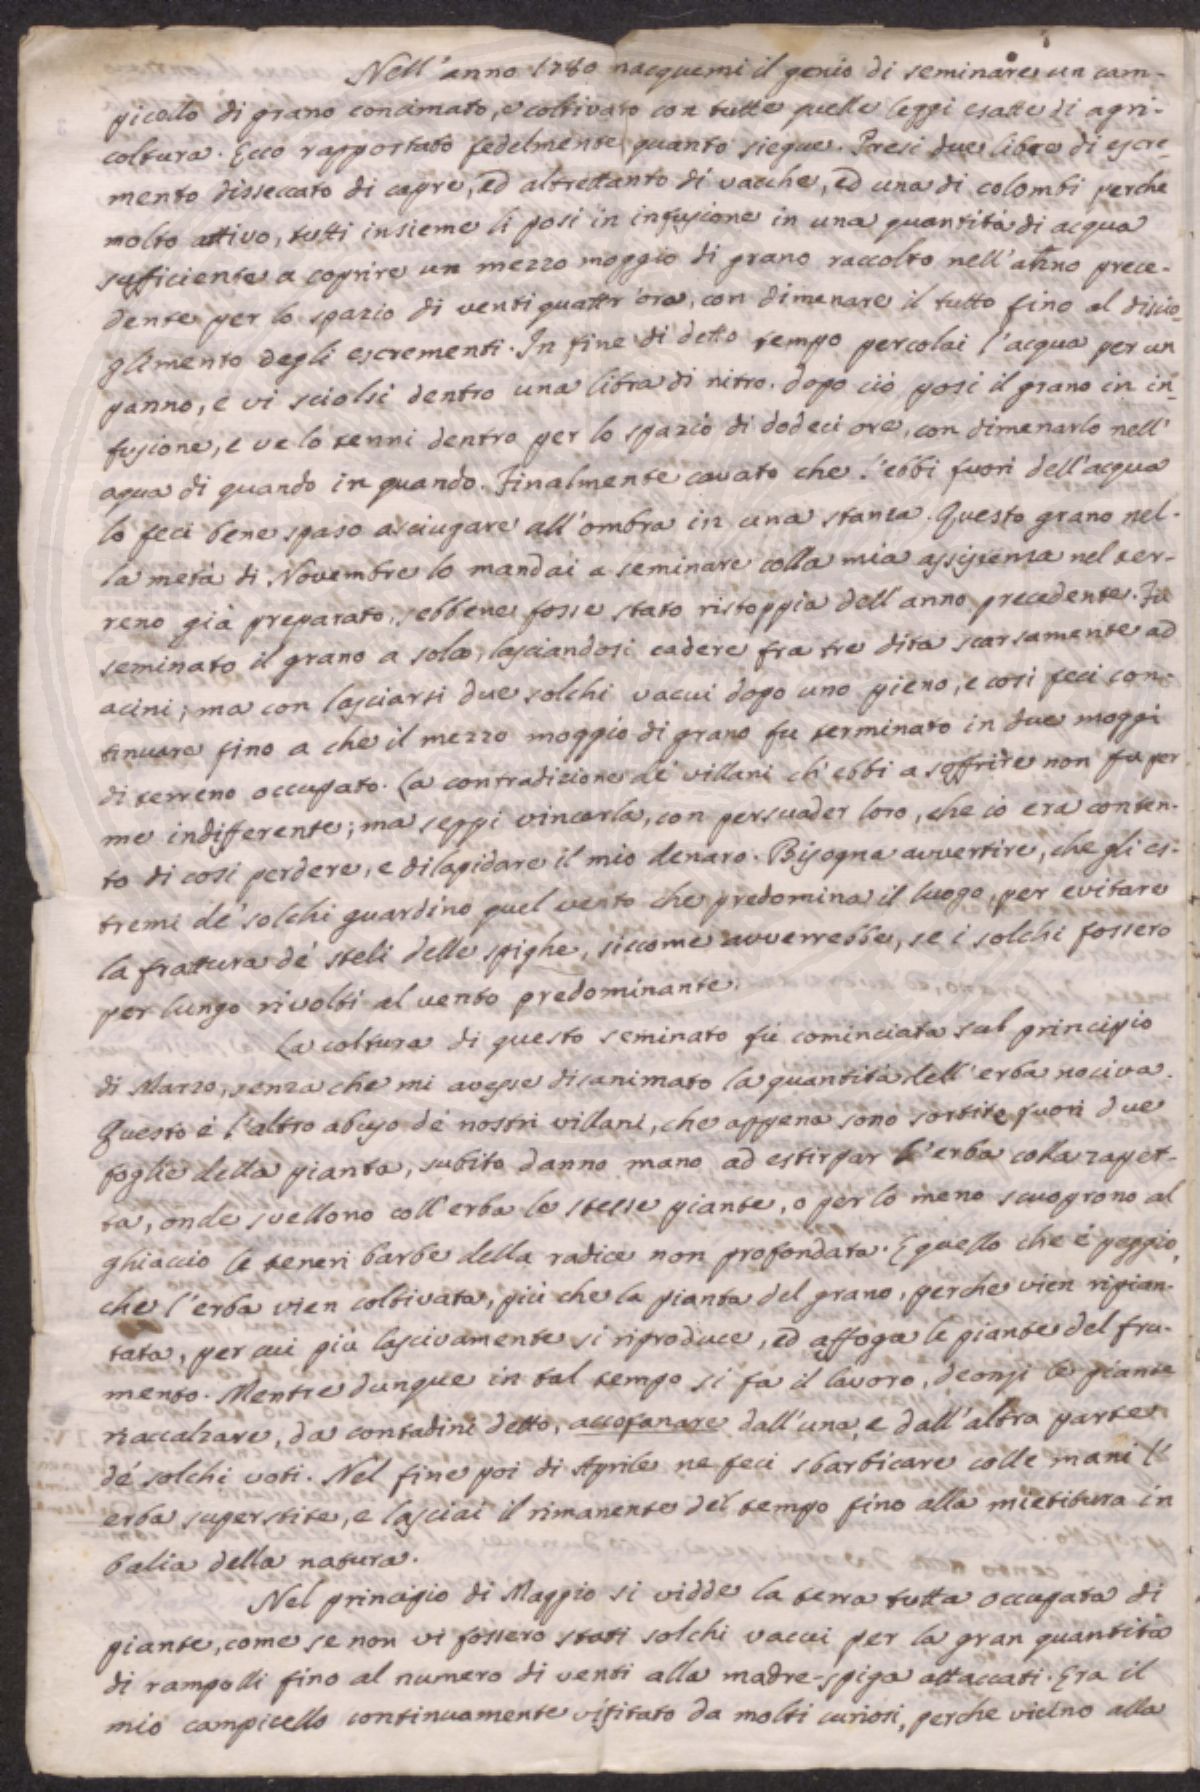 Nell'anno 1780 nacquemi il genio di seminare un cam-
picello di grano concimato, e coltivato con tutte quelle leggi esatte di agri-
coltura. Ecco rapportato fedelmente quanto siegue. Presi due libre di escre-
mento disseccato di capre, ed altrettanto di vacche, ed una di colombi perche
molto attivo, tutti insieme li posi in infusione in una quantità di acqua
sufficiente a coprire un mezzo moggio di grano raccolto nell'anno prece-
dente per lo spazio di venti quattr'ore, con dimenare il tutto fino al discio-
glimento degli escrementi. In fine di detto tempo percolai l'acqua per un
panno, e vi sciolsi dentro una libra di nitro. Dopo ciò posi il grano in in-
fusione, e ve lo tenni dentro per lo spazio di dodeci ore, con dimenarlo nell'
aqua di quando in quando. Finalmente cavato che l'ebbi fuori dell'acqua
lo feci bene spaso asciugare all'ombra in una stanza. Questo grano nel-
la metà di Novembre lo mandai a seminare colla mia assistenza nel ter-
reno già preparato, sebbene fosse stato ristoppia dell'anno precedente. Fu
seminato il grano a solco, lasciandosi cadere fra tre dita scarsamente ad
acini; ma con lasciarsi due solchi vacui dopo uno pieno, e così feci con-
tinuare fino a che il mezzo moggio di grano fu terminato in due moggi
di terreno occupato. La contradizione de' villani ch'ebbi a soffrire non fu per
me indifferente; ma seppi vincerla, con persuader loro, che io era conten-
to di così perdere, e dilapidare il mio denaro. Bisogna avvertire, che gli es-
tremi de' solchi guardino quel vento che predomina il luogo, per evitare
la frattura de' steli delle spighe, siccome avverrebbe, se i solchi fossero
per lungo rivolti al vento predominante.
La coltura di questo seminato fu cominciata sul principio
di Marzo, senza che mi avesse disanimato la quantità dell'erba nociva.
Questo è l'altro abuso de' nostri villani, che appena sono sortite fuori due
foglie della pianta, subito danno mano ad estirpar l'erba colla zappet-
ta, onde svellono coll'erba le stesse piante, o per lo meno scuoprono al
ghiaccio le teneri barbe della radice non profondata. E quello che è peggio,
che l'erba vien coltivata, più che la pianta del grano, perche vien ripian-
tata, per cui più lascivamente si riproduce, ed affoga le piante del fru-
mento. Mentre dunque in tal tempo si fa il lavoro, deonsi le piante
riaccalzare, da contadini detto, accofanare dall'una, e dall'altra parte
de' solchi voti. Nel fine poi di Aprile ne feci sbarbicare colle mani l'
erba superstite, e lasciai il rimanente del tempo fino alla mietitura in
balia della natura.
Nel principio di Maggio si vidde la terra tutta occupata di
piante, come se non vi fossero stati solchi vacui per la gran quantità
di rampolli fino al numero di venti alla madre-spiga attaccati. Era il
mio campicello continuamente visitato da molti curiosi, perche vicino alla